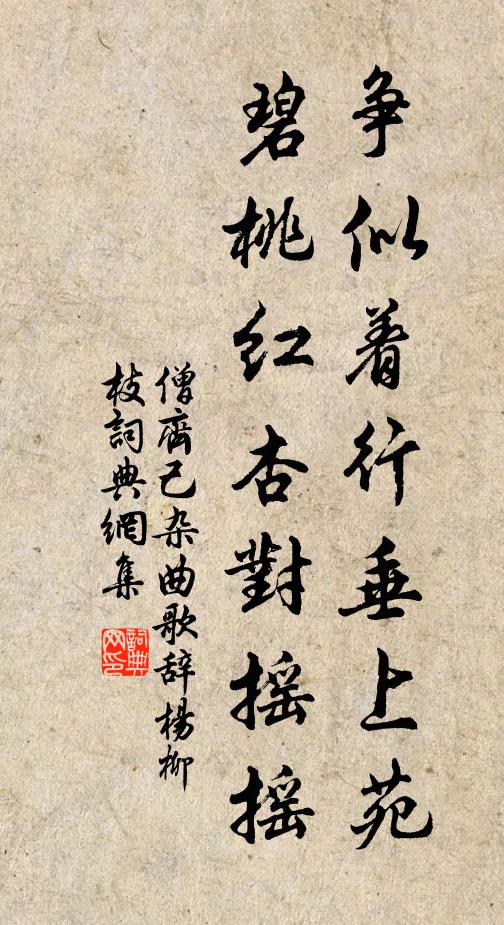 争似着行垂上苑
碧桃红杏對摇摇
僧齊己杂曲歌辞楊柳
枝詞典網集
詞典网印